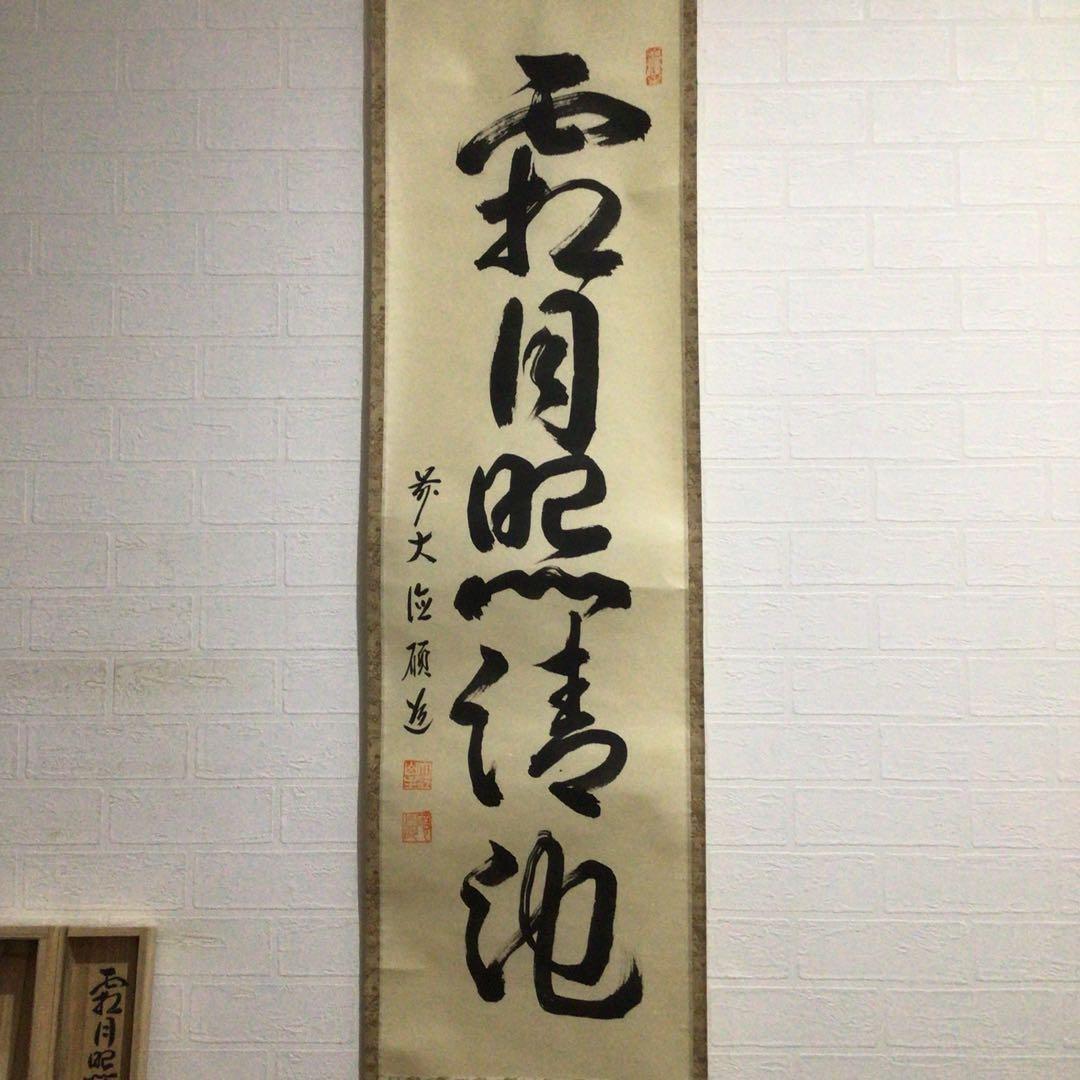 霜月照清池
前大徳碩道
霜月照